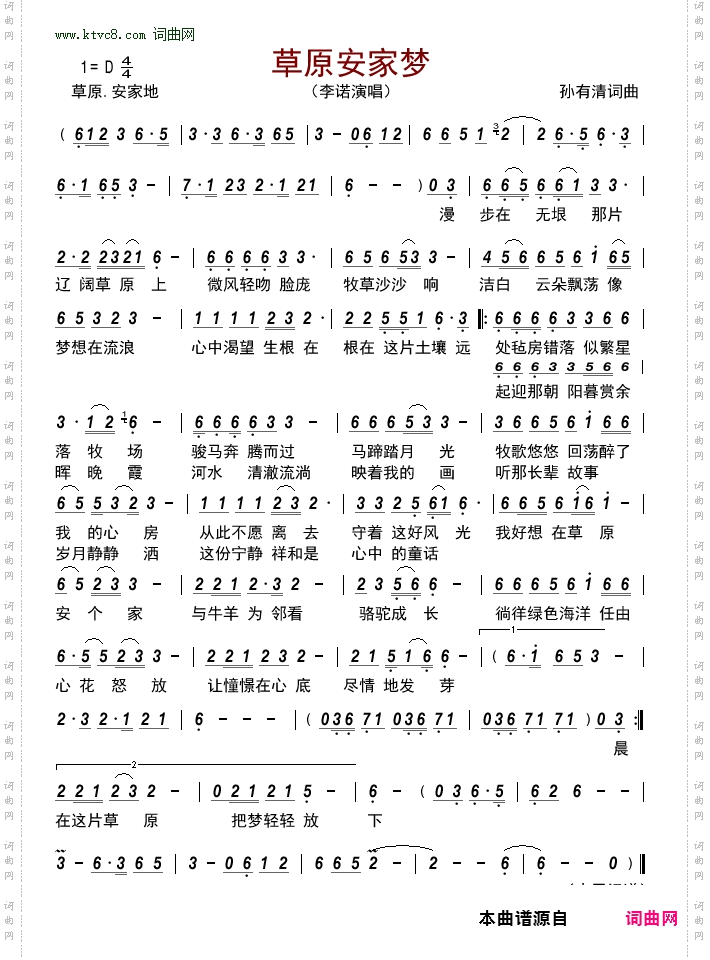 www.ktvc8.com 词曲网
1=D 4/4
草原安家梦
草原.安家地
（李诺演唱）
孙有清词曲
( 6 1 2 3 6·5 | 3·3 6·3 6 5 | 3 - 0 6 1 2 | 6 6 5 1 3 2 | 2 6·5 6·3 |
6·1 6 5 3 - | 7·1 2 3 2·1 2 1 | 6 - - ) 0 3 | 6 6 5 6 6 1 3 3· |
漫 步在 无垠 那片
2·2 2 3 2 1 6 - | 6 6 6 6 3 3· | 6 5 6 5 3 3 - | 4 5 6 6 5 6 i 6 5 |
辽 阔草 原 上 微风轻吻 脸庞 牧草沙沙 响 洁白 云朵飘荡 像
6 5 3 2 3 - | 1 1 1 1 2 3 2· | 2 2 5 5 1 6·3 |: 6 6 6 6 3 3 6 6 |
梦想在流浪 心中渴望 生根 在 根在 这片土壤 远 处毡房错落 似繁星
6 6 6 3 3 5 6 6
起迎那朝 阳暮赏余
3·1 2 1 6 - | 6 6 6 6 3 3 - | 6 6 6 5 3 3 - | 6 6 5 6 i 6 6 |
落 牧 场 骏马奔 腾而过 马蹄踏月 光 牧歌悠悠 回荡醉了
晖 晚 霞 河水 清澈流淌 映着我的 画 听那长辈 故事
6 5 5 3 2 3 - | 1 1 1 1 2 3 2· | 3 3 2 5 6 1 6· | 6 6 5 6 i 6 i - |
我 的心 房 从此不愿 离 去 守着 这好风 光 我好想 在草 原
岁月静静 洒 这份宁静 祥和是 心中 的童话
6 5 2 3 3 - | 2 2 2 1 2·3 2 - | 2 3 5 6 6 - | 6 6 5 6 i 6 6 |
安 个 家 与牛羊 为 邻看 骆驼成 长 徜徉绿色海洋 任由
6·5 5 2 3 3 - | 2 2 1 2 3 2 - | 2 1 5 1 6 6 - | 1 ( 6·i 6 5 3 - |
心 花 怒 放 让憧憬在心 底 尽情 地发 芽
2·3 2·1 2 1 | 6 - - - | ( 0 3 6 7 1 0 3 6 7 1 | 0 3 6 7 1 7 1 ) 0 3 :|
晨
2
2 2 1 2 3 2 - | 0 2 1 2 1 5 - | 6 - ( 0 3 6·5 | 6 2 6 - - |
在这片草 原 把梦轻轻 放 下
3 - 6·3 6 5 | 3 - 0 6 1 2 | 6 6 5 2 - | 2 - - 6 | 6 - - 0 ) |
本曲谱源自 词曲网